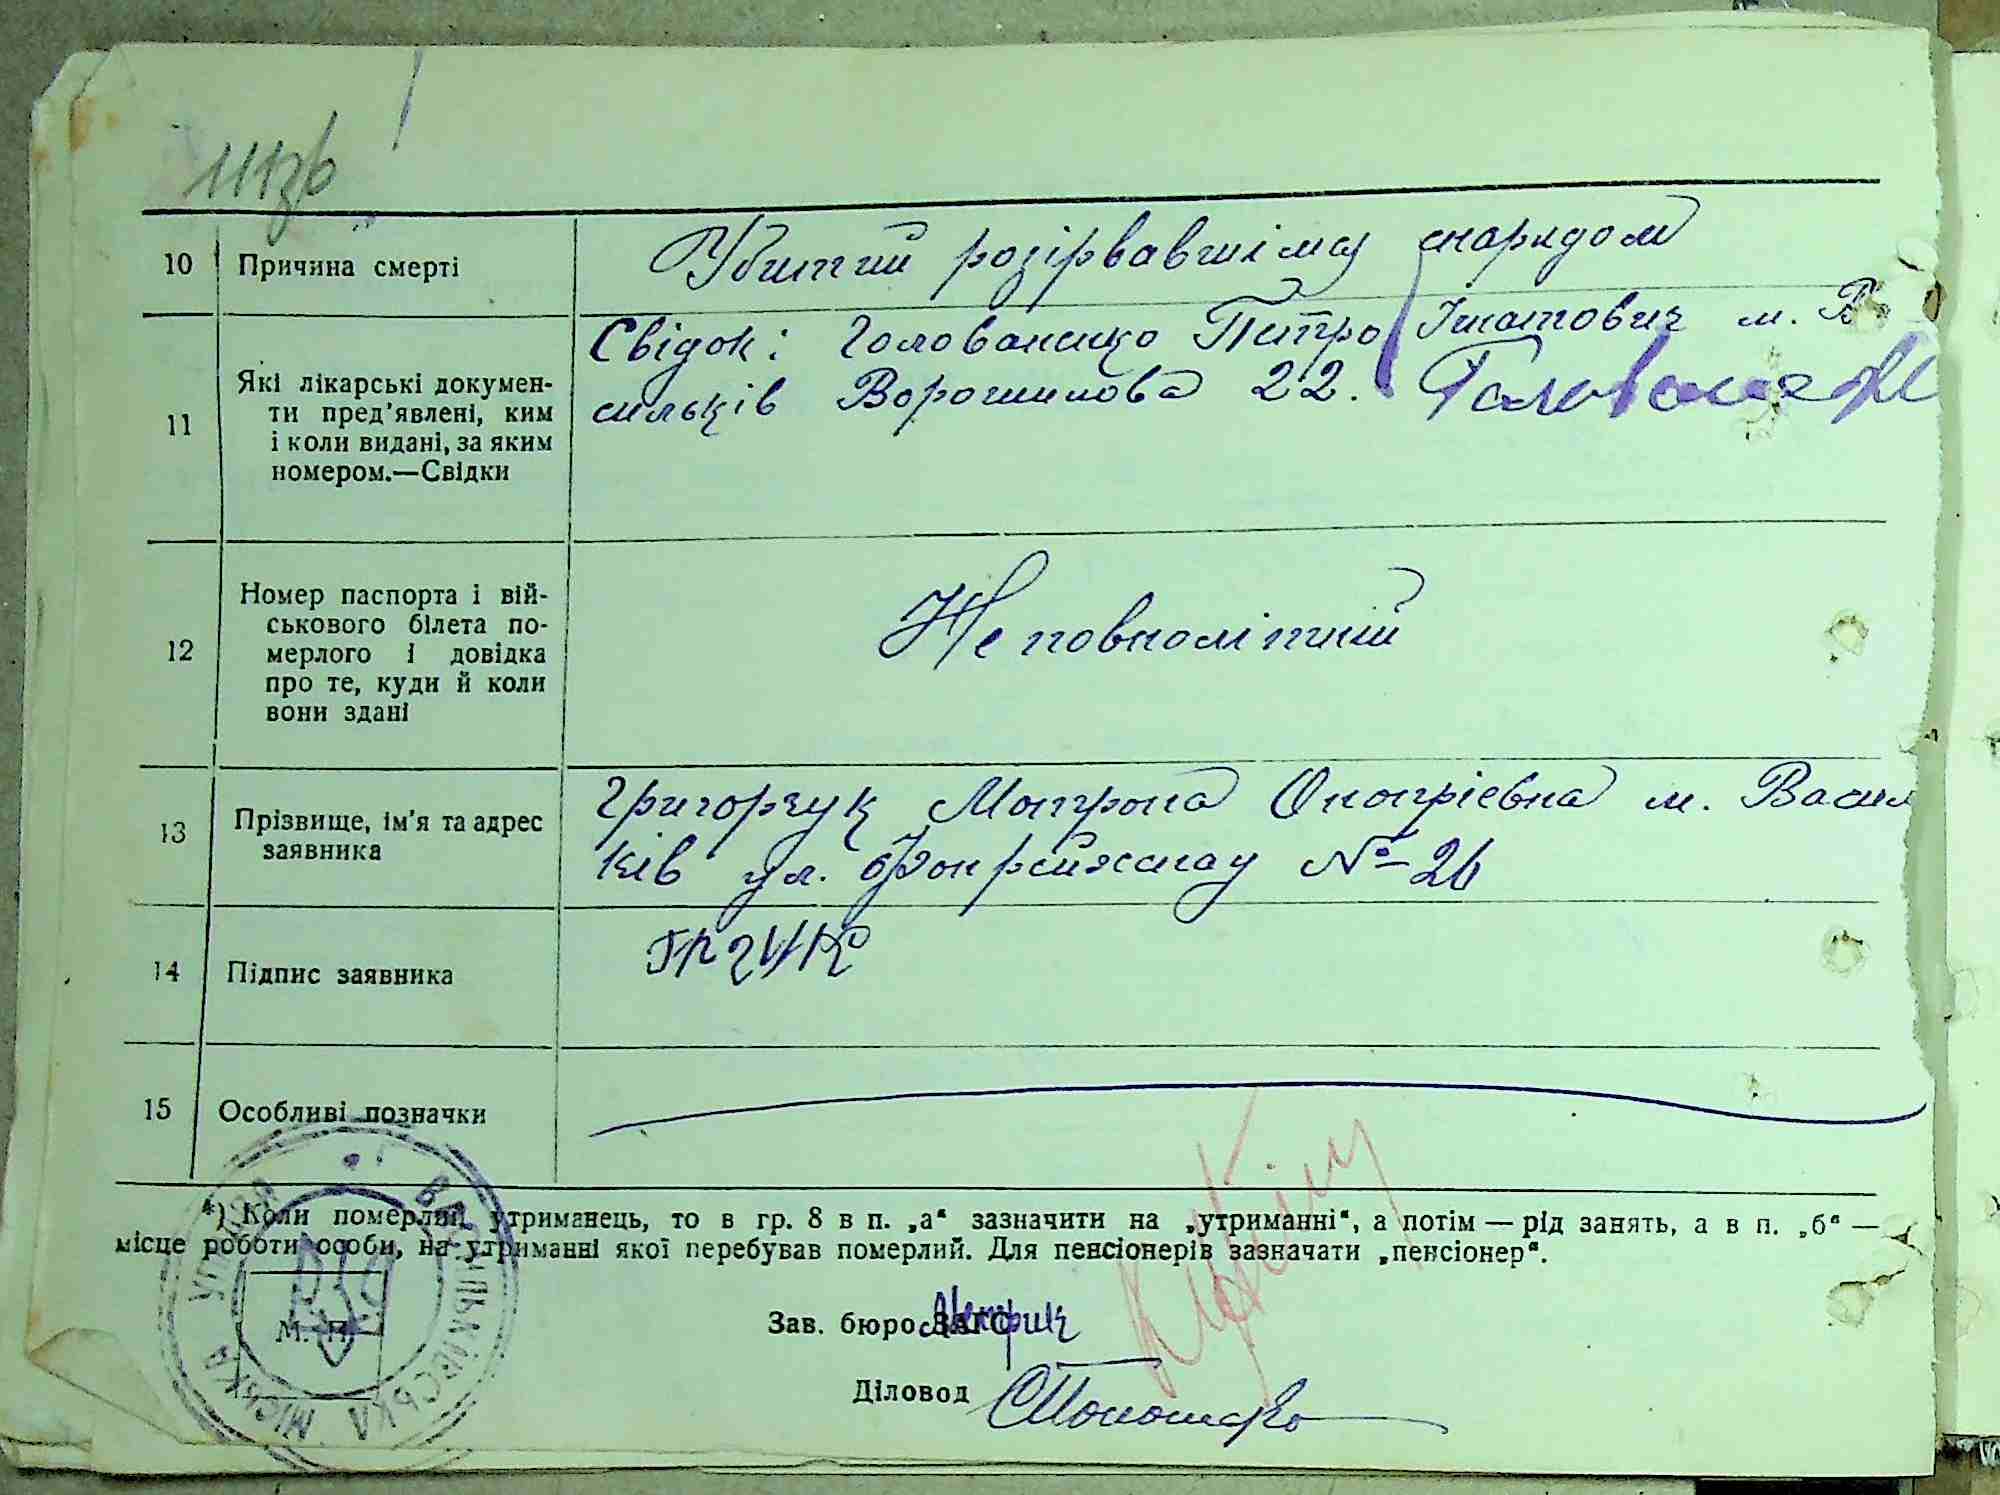 111зв
10 Причина смерті Убитий розірвавшімся снарядом
11 Які лікарські докумен-
ти пред'явлені, ким
і коли видані, за яким
номером.—Свідки
Свідок: Голованенко Петро Ігнатович м. Ва
сильків Ворошилова 22.
12 Номер паспорта і вій-
ськового білета по-
мерлого і довідка
про те, куди й коли
вони здані
Неповнолітній
13 Прізвище, ім'я та адрес
заявника
Григорчук Мотрона Онопріевна м. Василь
ків ул. №26
14 Підпис заявника
15 Особливі позначки
*) Коли померлий утриманець, то в гр. 8 в п. „а“ зазначити на „утриманні“, а потім — рід занять, а в п. „б“ —
місце роботи особи, на утриманні якої перебував померлий. Для пенсіонерів зазначати „пенсіонер“.
М. П.
ВАСИЛЬКІВСЬКА МІСЬКА УПРАВА
Зав. бюро ЗАГС
Діловод